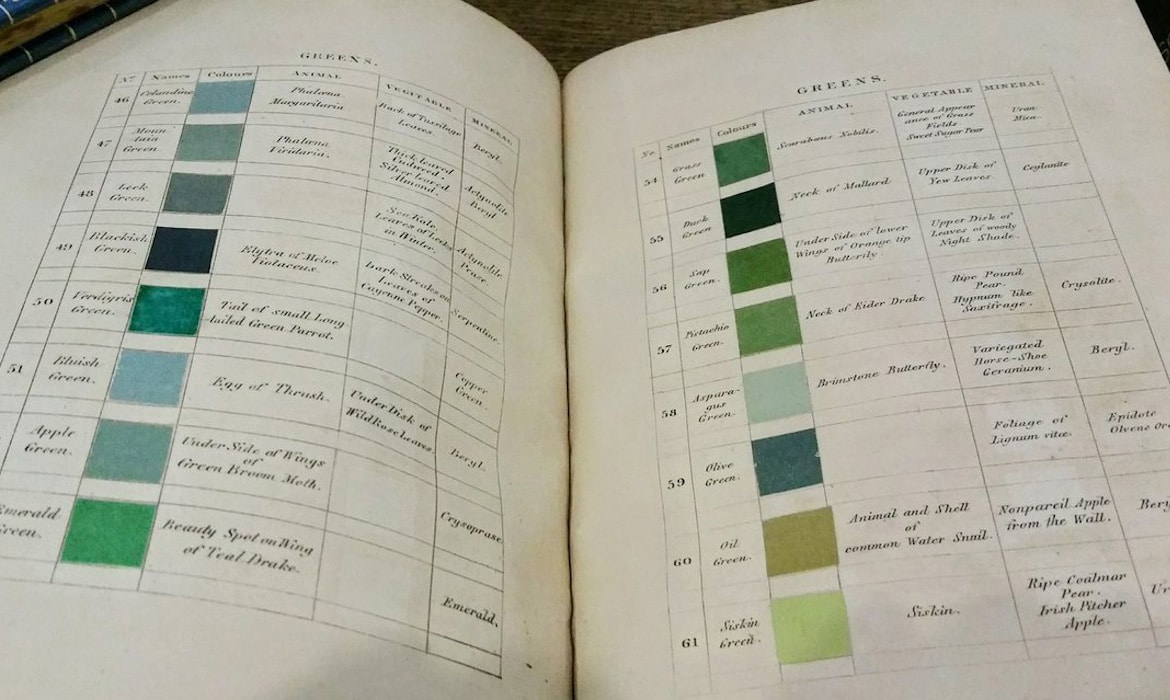 GREENS.
No. Names Colours ANIMAL VEGETABLE MINERAL
46
Celandine
Green.
Phalæna
Margaritaria
Back of Tussilage
Leaves.
Beryl.
47
Moun
tain
Green.
Phalæna
Viridaria.
Thick leaved
Cudweed
Silver leaved
Almond.
Actynolite
Beryl
48
Leek
Green.
Sea Kale.
Leaves of Leeks
in Winter.
Actynolite
Prase
49
Blackish
Green.
Elytra of Meloe
Violaceus.
Dark Streaks on
Leaves of
Cayenne Pepper.
Serpentine.
50
Verdigris
Green.
Tail of small Long
tailed Green Parrot.
Copper
Green.
51
Bluish
Green.
Egg of Thrush.
Under Disk of
Wild Rose Leaves.
Beryl.
Apple
Green.
Under Side of Wings
of
Green Broom Moth.
Crysoprase
Emerald
Green.
Beauty Spot on Wing
of Teal Drake.
Emerald.
GREENS.
No. Names Colours ANIMAL VEGETABLE MINERAL
54
Grass
Green
Scarabœus Nobilis.
General Appear
ance of Grass
Fields
Sweet Sugar Pear
Uran
Mica.
55
Duck
Green
Neck of Mallard
Upper Disk of
Yew Leaves.
Ceylanite
56
Sap
Green.
Under Side of lower
Wings of Orange tip
Butterfly
Upper Disk of
Leaves of woody
Night Shade.
57
Pistachio
Green.
Neck of Eider Drake
Ripe Pound
Pear.
Hypnum like
Saxifrage.
Crysolite.
58
Aspara-
gus
Green.
Brimstone Butterfly.
Variegated
Horse-Shoe
Geranium.
Beryl.
59
Olive
Green.
Foliage of
Lignum vitæ.
Epidote
Olvene Ore
60
Oil
Green.
Animal and Shell
of
common Water Snail.
Nonpareil Apple
from the Wall.
Bery
61
Siskin
Green.
Siskin.
Ripe Coalmar
Pear.
Irish Pitcher
Apple.
Ur